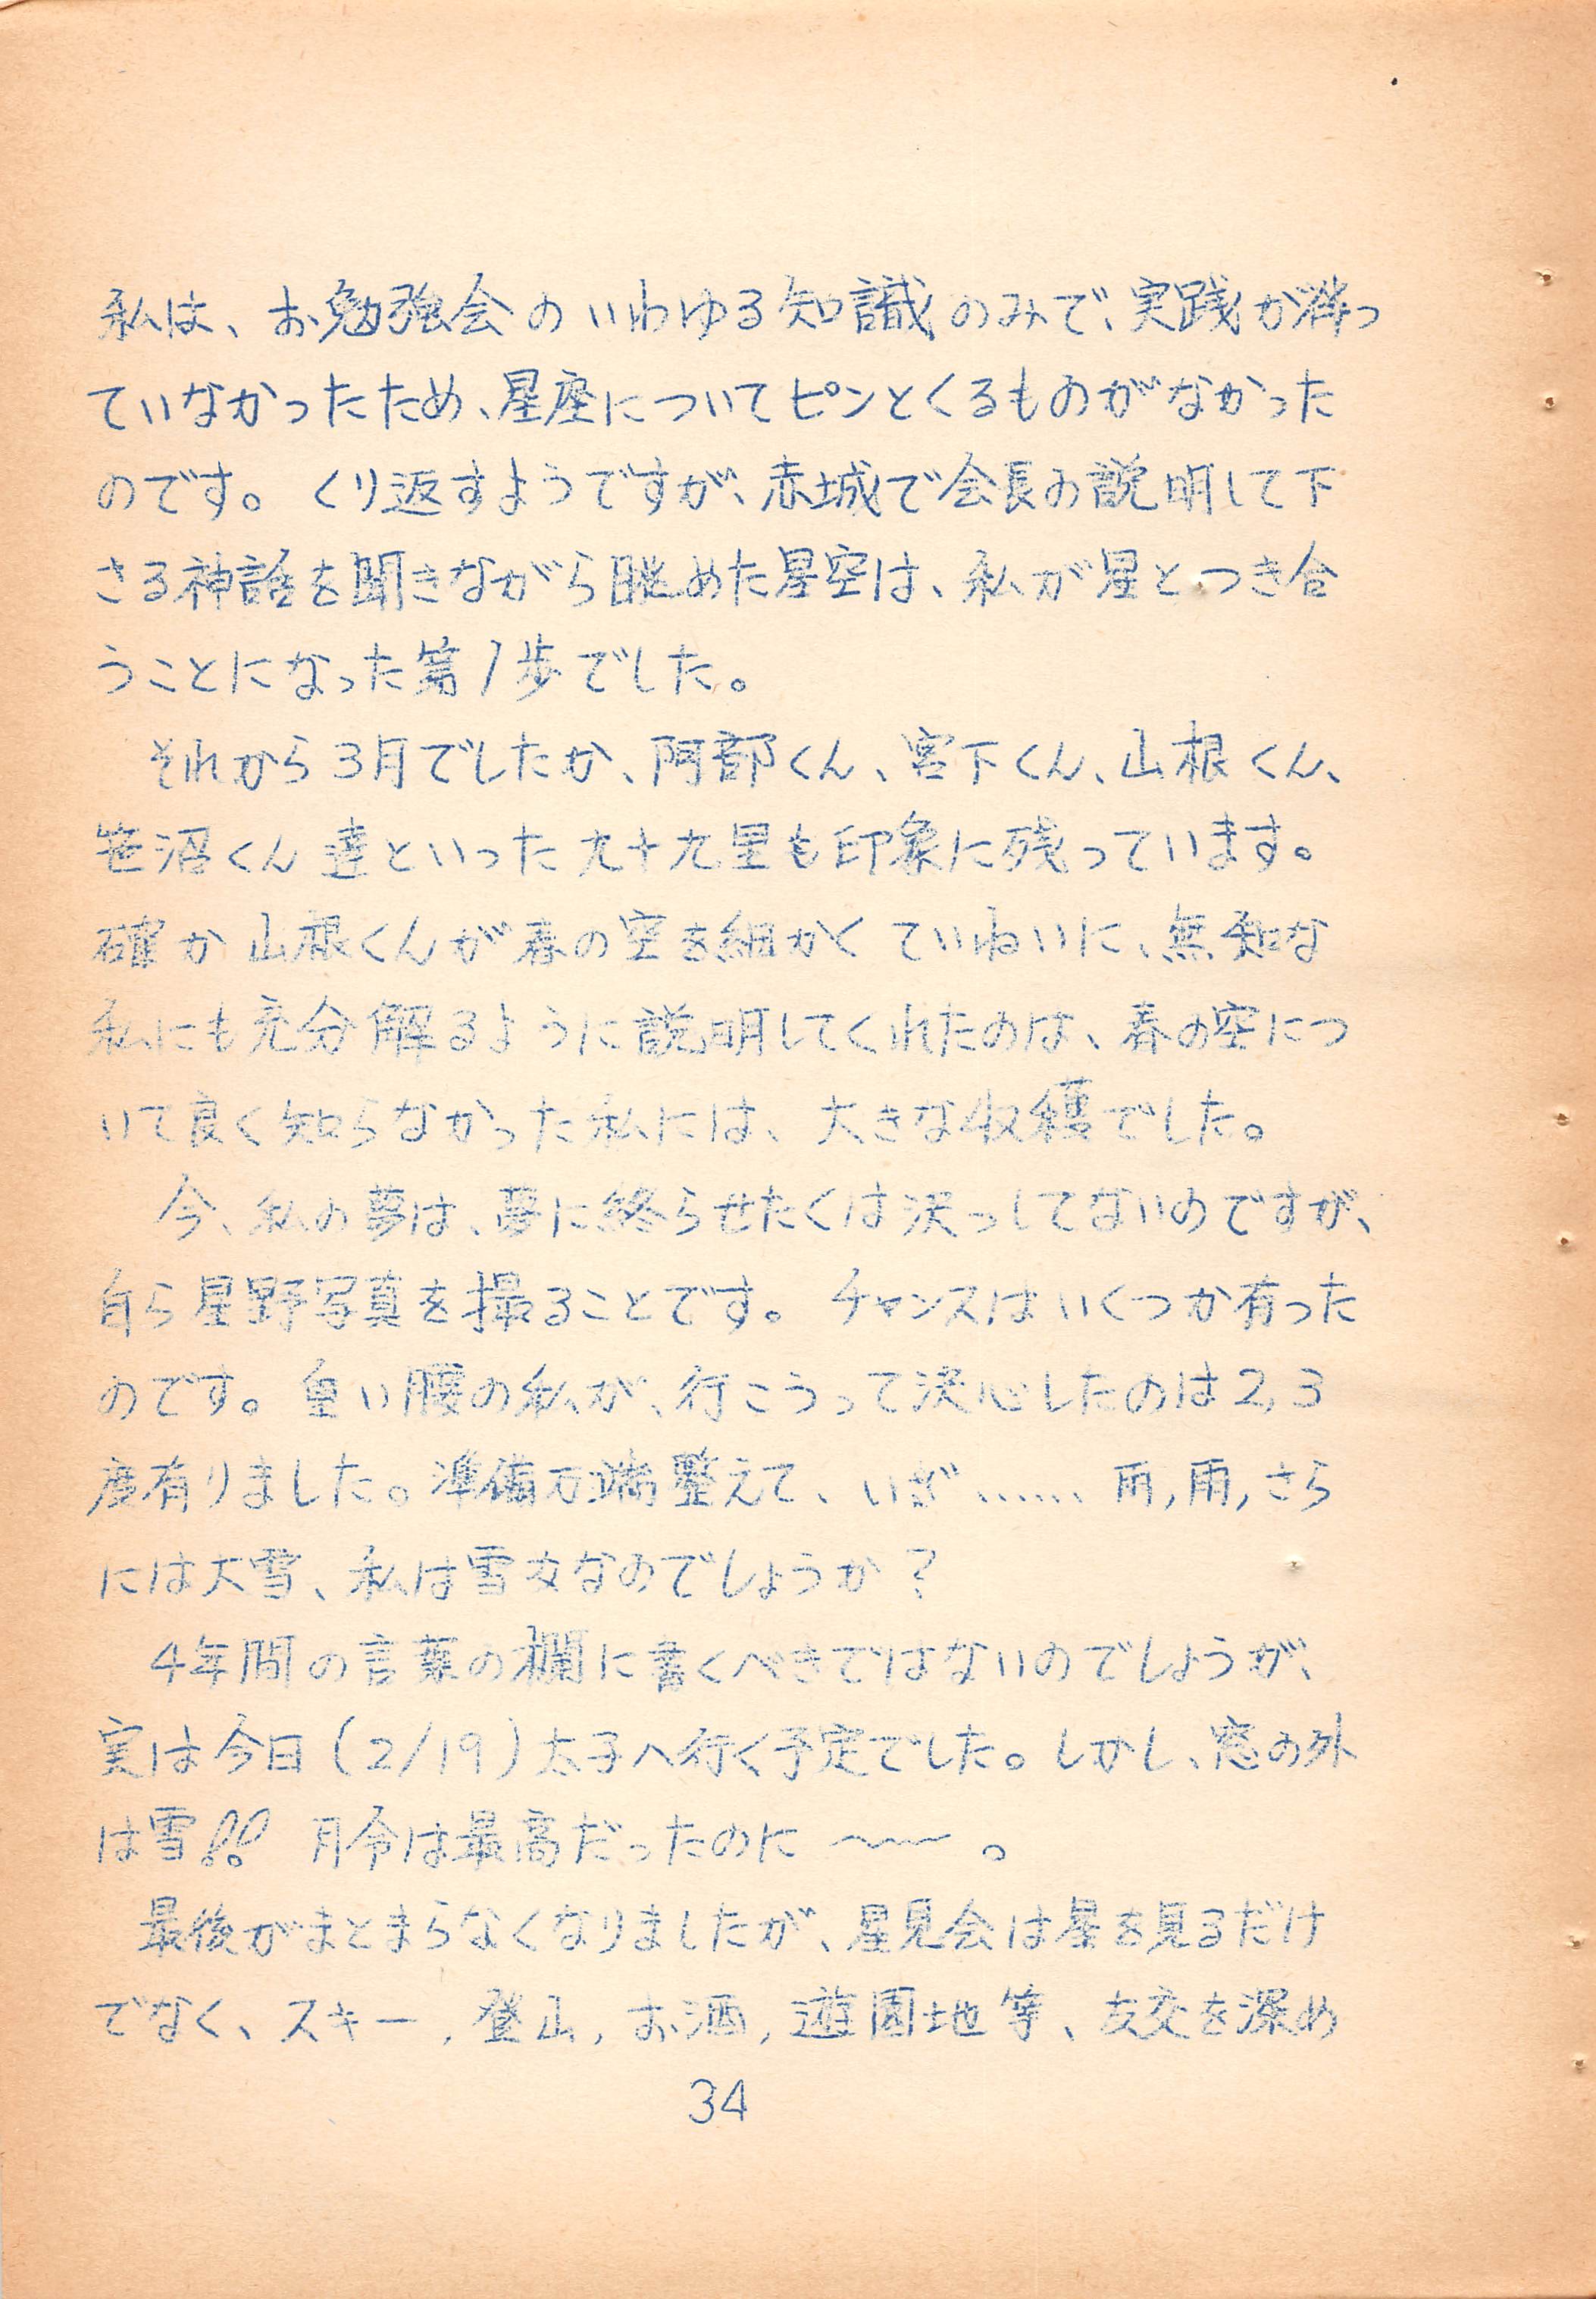 私は、お勉強会のいわゆる知識のみで、実践が伴っ
ていなかったため、星座についてピンとくるものがなかった
のです。くり返すようですが、赤城で会長の説明して下
さる神話を聞きながら眺めた星空は、私が星とつき合
うことになった第1歩でした。
それから3月でしたか、阿部くん、宮下くん、山根くん、
笹沼くん達といった九十九里も印象に残っています。
確か山根くんが春の空を細かくていねいに、無知な
私にも充分解るように説明してくれたのは、春の空につ
いて良く知らなかった私には、大きな収穫でした。
今、私の夢は、夢に終らせたくは決っしてないのですが、
自ら星野写真を撮ることです。チャンスはいくつか有った
のです。重い腰の私が、行こうって決心したのは2,3
度有りました。準備万端整えて、いざ……雨,雨,さら
には大雪、私は雪女なのでしょうか?
4年間の言葉の欄に書くべきではないのでしょうが、
実は今日(2/19)太子へ行く予定でした。しかし、窓の外
は雪!! 月令は最高だったのに〜〜。
最後がまとまらなくなりましたが、星見会は星を見るだけ
でなく、スキー,登山,お酒,遊園地等、友交を深め
34